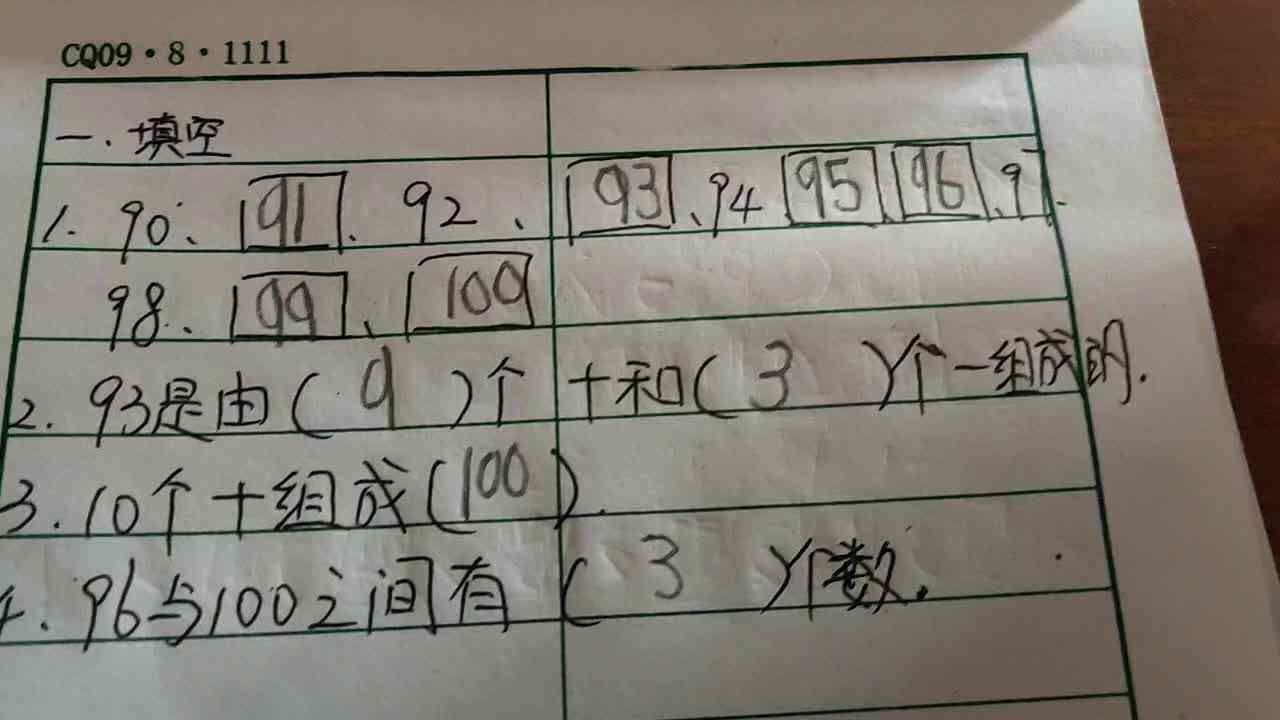 CQ09·8·1111
一.填空
1. 90、91、92、93、94 95、96、97.
98、99、100
2. 93是由(9)个十和(3)个一组成的.
3. 10个十组成(100).
4. 96与100之间有(3)个数.